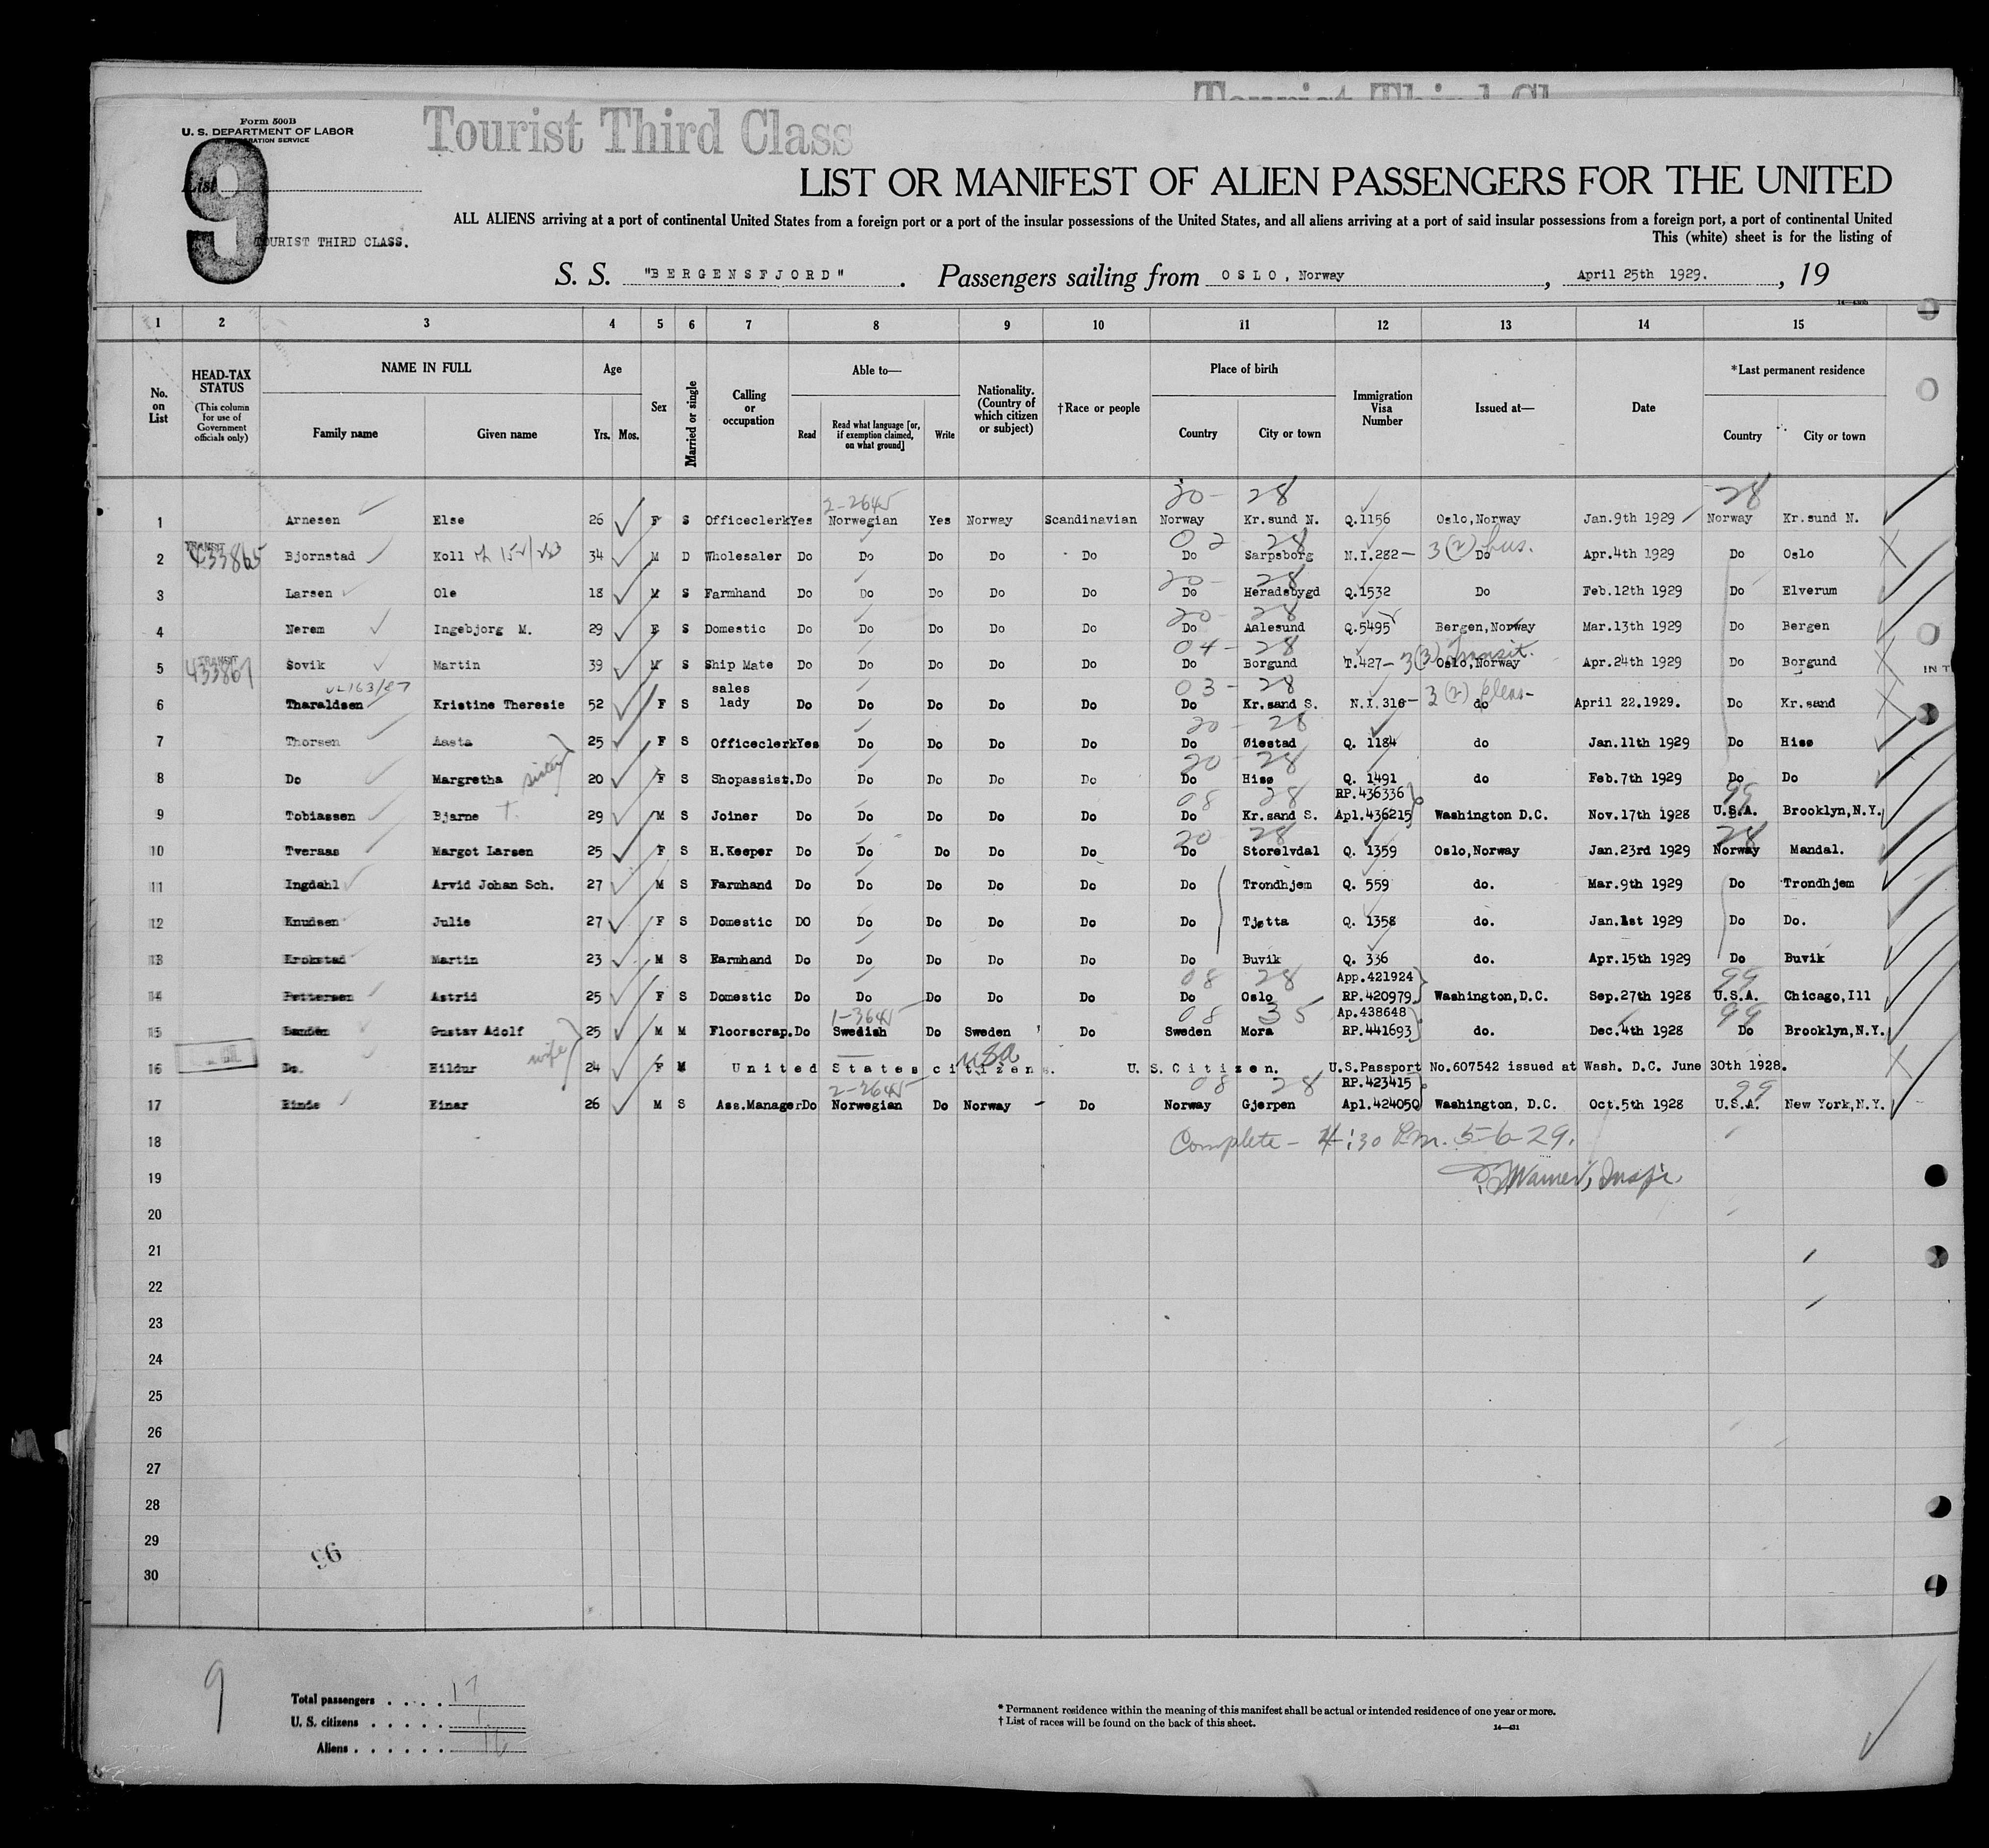 Tourist Third Cl
Form 500B
U. S. DEPARTMENT OF LABOR
Tourist Third Class
List 9
LIST OR MANIFEST OF ALIEN PASSENGERS FOR THE UNITED
ALL ALIENS arriving at a port of continental United States from a foreign port or a port of the insular possessions of the United States, and all aliens arriving at a port of said insular possessions from a foreign port, a port of continental United
TOURIST THIRD CLASS.
This (white) sheet is for the listing of
S. S. "BERGENSFJORD". Passengers sailing from OSLO, Norway, April 25th 1929., 19
1 2 3 4 5 6 7 8 9 10 11 12 13 14 15
No. on List
HEAD-TAX STATUS
(This column for use of Government officials only)
NAME IN FULL
Family name Given name
Age
Yrs. Mos.
Sex
Married or single
Calling or occupation
Able to—
Read
Read what language [or, if exemption claimed, on what ground]
Write
Nationality. (Country of which citizen or subject)
†Race or people
Place of birth
Country City or town
Immigration Visa Number
Issued at—
Date
*Last permanent residence
Country City or town
20- 28 28
1 Arnesen Else 26 F S Officeclerk Yes Norwegian Yes Norway Scandinavian Norway Kr.sund N. Q.1156 Oslo,Norway Jan.9th 1929 Norway Kr.sund N.
02 28 3(2) bus.
2 TRANSIT 433865 Bjornstad Koll 34 M D Wholesaler Do Do Do Do Do Do Sarpsborg N.I.282— Do Apr.4th 1929 Do Oslo
20- 28
3 Larsen Ole 18 M S Farmhand Do Do Do Do Do Do Heradsbygd Q.1532 Do Feb.12th 1929 Do Elverum
20- 28
4 Nerem Ingebjorg M. 29 F S Domestic Do Do Do Do Do Do Aalesund Q.5495 Bergen,Norway Mar.13th 1929 Do Bergen
04-28 3(3) transit.
5 TRANSIT 433867 Sovik Martin 39 M S Ship Mate Do Do Do Do Do Do Borgund T.427— Oslo,Norway Apr.24th 1929 Do Borgund IN T
03-28 3(2) pleas-
6 Tharaldsen Kristine Theresie 52 F S sales lady Do Do Do Do Do Do Kr.sand S. N.I.316— do April 22.1929. Do Kr.sand
20-28
7 Thorsen Aasta 25 F S Officeclerk Yes Do Do Do Do Do Øiestad Q. 1184 do Jan.11th 1929 Do Hisø
sister
20-28
8 Do Margretha 20 F S Shopassist. Do Do Do Do Do Do Hisø Q. 1491 do Feb.7th 1929 Do Do
08 28 RP.436336 99
9 Tobiassen Bjarne T. 29 M S Joiner Do Do Do Do Do Do Kr.sand S. Apl.436215 Washington D.C. Nov.17th 1928 U.S.A. Brooklyn,N.Y.
20 28 28
10 Tveraas Margot Larsen 25 F S H.Keeper Do Do Do Do Do Do Storelvdal Q. 1359 Oslo,Norway Jan.23rd 1929 Norway Mandal.
11 Ingdahl Arvid Johan Sch. 27 M S Farmhand Do Do Do Do Do Do Trondhjem Q. 559 do. Mar.9th 1929 Do Trondhjem
12 Knudsen Julie 27 F S Domestic DO Do Do Do Do Do Tjøtta Q. 1358 do. Jan.1st 1929 Do Do.
13 Krokstad Martin 23 M S Farmhand Do Do Do Do Do Do Buvik Q. 336 do. Apr.15th 1929 Do Buvik
08 28 App.421924 99
14 Pettersen Astrid 25 F S Domestic Do Do Do Do Do Do Oslo RP.420979 Washington,D.C. Sep.27th 1928 U.S.A. Chicago,Ill
08 35 Ap.438648 99
15 Sandén Gustav Adolf 25 M M Floorscrap. Do Swedish Do Sweden Do Sweden Mora RP.441693 do. Dec.4th 1928 Do Brooklyn,N.Y.
wife USA
16 Do. Hildur 24 F M United States citizens. U.S.Citizen. U.S.Passport No.607542 issued at Wash. D.C. June 30th 1928.
08 28 RP.423415 99
17 Einar 26 M S Ass.Manager Do Norwegian Do Norway - Do Norway Gjerpen Apl.424050 Washington, D.C. Oct.5th 1928 U.S.A. New York,N.Y.
18 Complete - 4:30 P.m. 5-6-29.
19 Warner, Inspr.
20
21
22
23
24
25
26
27
28
29
30
96
9
Total passengers . . . . 17
U. S. citizens . . . . . 1
Aliens . . . . . . 16
* Permanent residence within the meaning of this manifest shall be actual or intended residence of one year or more.
† List of races will be found on the back of this sheet.
14—431